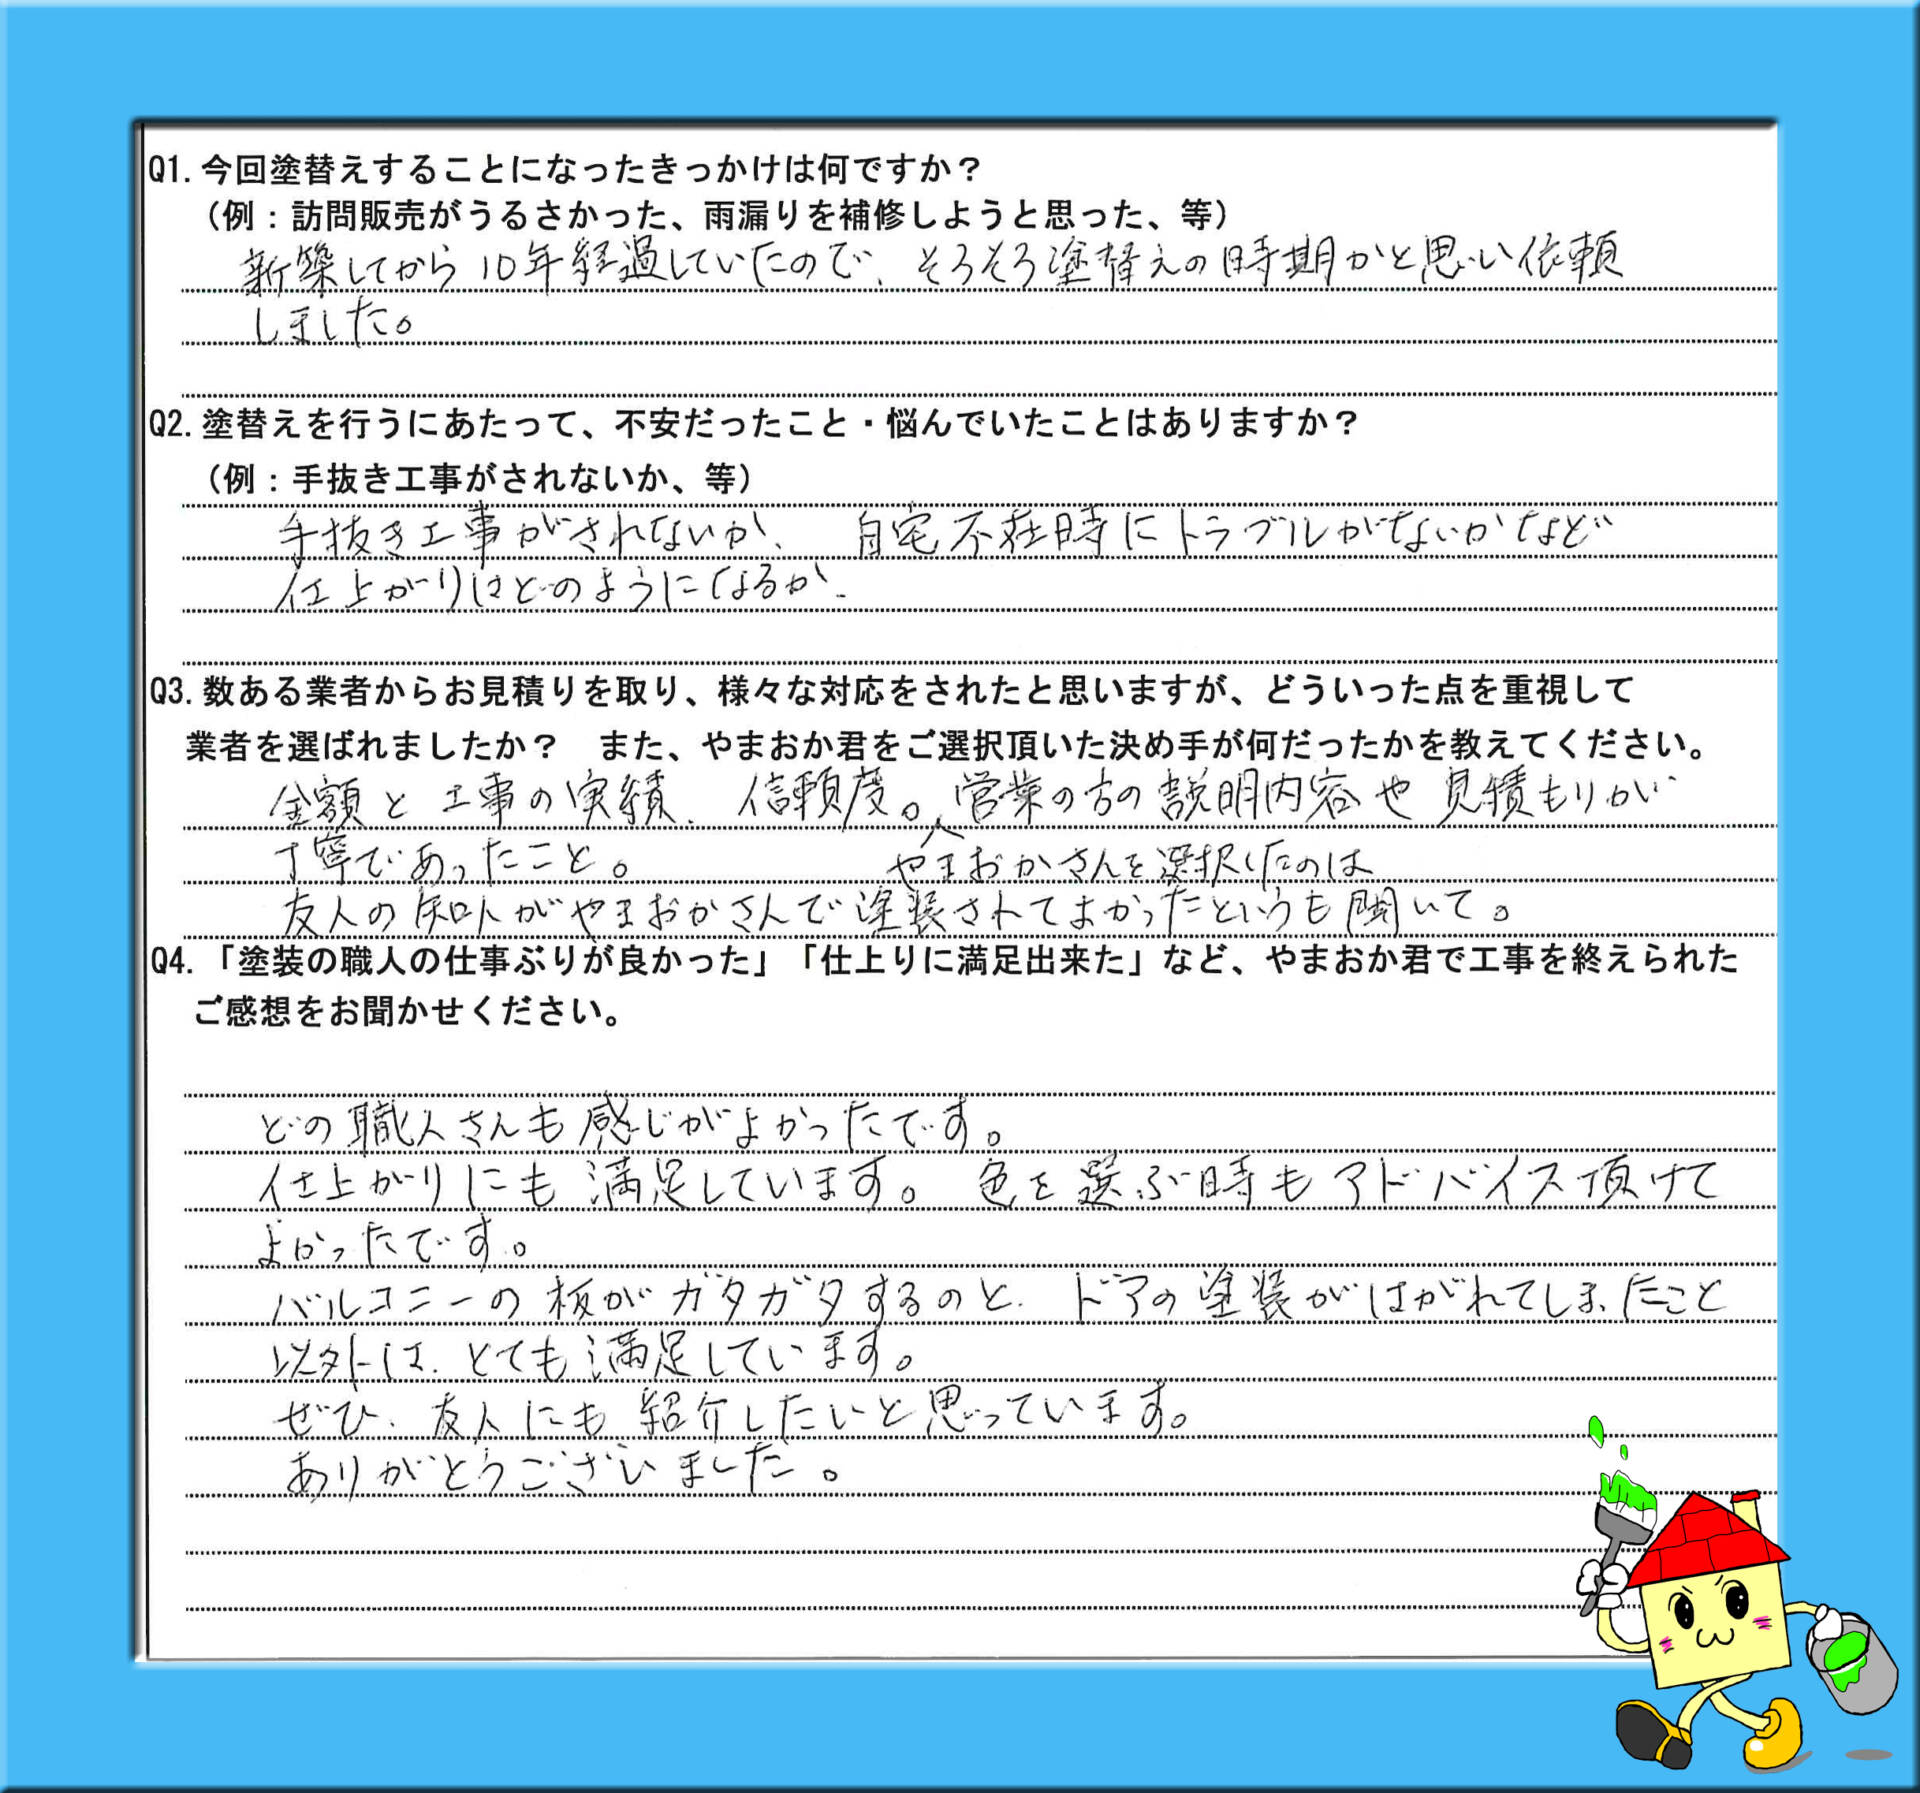 Q1. 今回塗替えすることになったきっかけは何ですか？
（例：訪問販売がうるさかった、雨漏りを補修しようと思った、等）
新築してから10年経過していたので、そろそろ塗替えの時期かと思い依頼
しました。
Q2. 塗替えを行うにあたって、不安だったこと・悩んでいたことはありますか？
（例：手抜き工事がされないか、等）
手抜き工事がされないか、 自宅不在時にトラブルがないかなど
仕上がりはどのようになるか、
Q3. 数ある業者からお見積りを取り、様々な対応をされたと思いますが、どういった点を重視して
業者を選ばれましたか？ また、やまおか君をご選択頂いた決め手が何だったかを教えてください。
金額と工事の実績、信頼度。営業の方の説明内容や見積もりが
丁寧であったこと。 やまおかさんを選択したのは
友人の知人がやまおかさんで塗装されてよかったというも聞いて。
Q4. 「塗装の職人の仕事ぶりが良かった」「仕上りに満足出来た」など、やまおか君で工事を終えられた
ご感想をお聞かせください。
どの職人さんも感じがよかったです。
仕上がりにも満足しています。色を選ぶ時もアドバイス頂けて
よかったです。
バルコニーの板がガタガタするのと、ドアの塗装がはがれてしまったこと
以外は、とても満足しています。
ぜひ、友人にも紹介したいと思っています。
ありがとうございました。